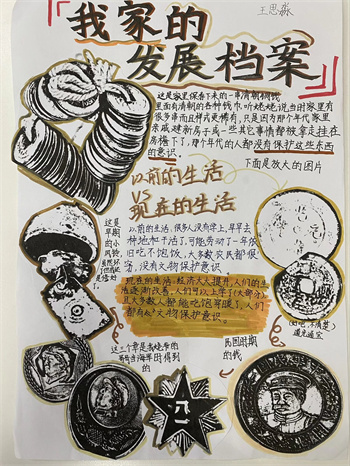 王思淼
『我家的
发展档案』
这是家里保存下来的一串清朝铜钱
里面有清朝的各种钱币,听姥姥说,当时家里有
很多串而且样式更稀有,只是因为那个年代家里
亲戚建新房子或一些其它事情都被拿去挂在
房檐下了,那个年代的人都没有保护这些东西
的意识.
下面是放大的图片
以前的生活
VS
现在的生活
这是
早期
的小
风铃,
以前的生活,很多人没有学上,早早去
种地和干活了,可能劳动了一年依
旧吃不饱饭,大多数农民都很
穷,没有文物保护意识
现在的生活,经济大大提升,人们的生
活逐渐改善,人们可以上学了(大部分)
且大多数人都能吃饱穿暖,人们
都有了文物保护意识
道光通宝
民国时期
的钱
八一